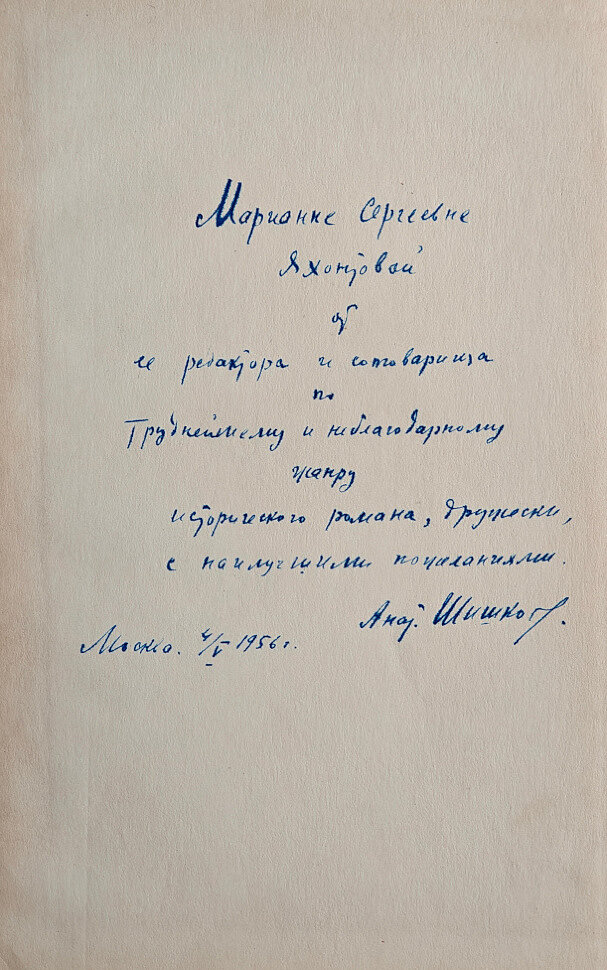 Марианне Сергеевне
Яхонтовой
от
ее редактора и сотоварища
по
Труднейшему и неблагодарному
жанру
исторического романа, дружески,
с наилучшими пожеланиями.
Анат. Шишко
Москва. 4/V 1956 г.